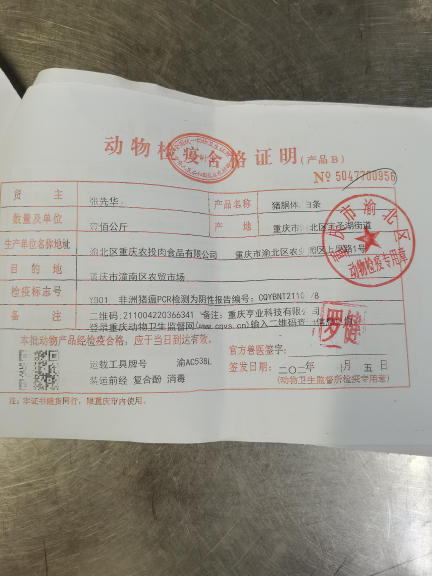 动物检疫合格证明(产品B)
№ 5047700956
货主 张先华 产品名称 猪胴体 白条
数量及单位 壹佰公斤 产地 重庆市渝北区宝圣湖街道
生产单位名称地址 渝北区重庆农投肉食品有限公司 重庆市渝北区农业园区上果路1号
目的地 重庆市潼南区农贸市场
检疫标志号 YB01 非洲猪瘟PCR检测为阴性报告编号: CQYBNT2110
备注 二维码:211004220366341 备注: 重庆亨业科技有限公司
登录重庆动物卫生监督网(www.cqvs.cn)输入二维码查
本批动物产品经检疫合格,应于当日到达有效。
官方兽医签字:
罗健
运载工具牌号 渝AC538L
签发日期: 二〇二 年 月 五 日
装运前经 复合酚 消毒
(动物卫生监督所检疫专用章)
注: 本证书随货同行,限重庆市内使用。
重庆市渝北区
动物检疫专用章